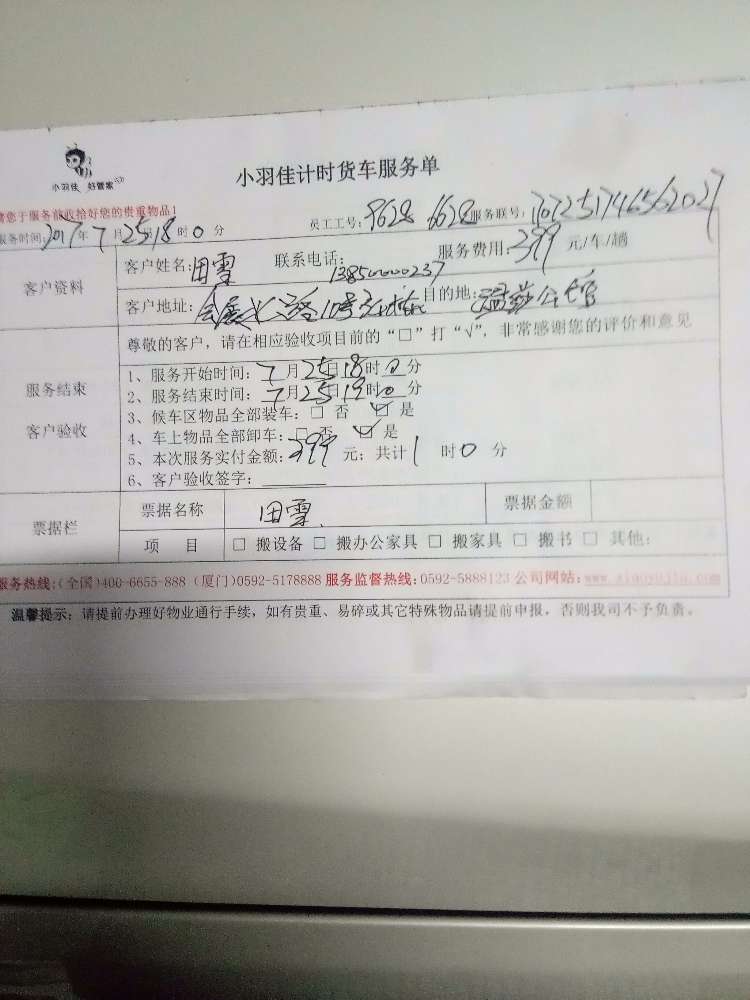 小羽佳 好管家
小羽佳计时货车服务单
请您于服务前收拾好您的贵重物品！
员工工号：9628 6628 服务联号：
服务时间：2017年7月25日18时0分
客户资料
客户姓名：田雪 联系电话： 服务费用：299元/车/趟
客户地址： 目的地：
服务结束
客户验收
尊敬的客户，请在相应验收项目前的“□”打“√”，非常感谢您的评价和意见
1、服务开始时间：7月25日18时0分
2、服务结束时间：7月25日19时0分
3、候车区物品全部装车：□ 否 ☑ 是
4、车上物品全部卸车：□ 否 ☑ 是
5、本次服务实付金额：299元；共计1时0分
6、客户验收签字：
票据栏
票据名称 田雪 票据金额
项 目 □ 搬设备 □ 搬办公家具 □ 搬家具 □ 搬书 □ 其他：
服务热线：(全国)400-6655-888 (厦门)0592-5178888 服务监督热线：0592-5888123 公司网站：www.xiaoyujia.com
温馨提示：请提前办理好物业通行手续，如有贵重、易碎或其它特殊物品请提前申报，否则我司不予负责。